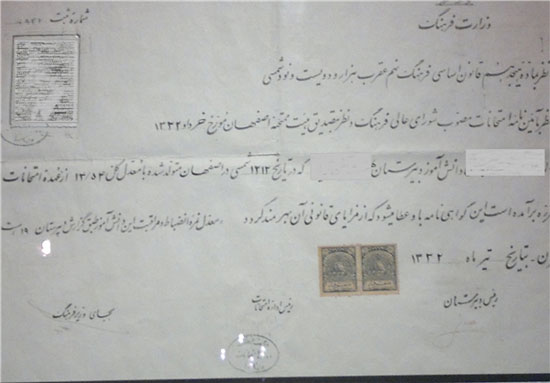 وزارت فرهنگ
شماره ثبت
نظر بماده پنجم قانون اساسی فرهنگ دهم عقرب هزار و دویست و نود شمسی
نظر بآئین نامه امتحانات مصوب شورای عالی فرهنگ و نظر بتصدیق هیئت ممتحنه اصفهان مورخ خرداد ۱۳۳۲
دانش آموز دبیرستان که در تاریخ ۱۳۱۲ شمسی در اصفهان متولد شده با معدل کل ۱۳/۵۴ از عهده امتحانات
برآمده است این گواهی نامه باو عطا میشود که از مزایای قانونی آن بهره مند گردد معدل نمره انضباط و مراقبت این دانش آموز طبق گزارش دبیرستان است
بتاریخ تیر ماه ۱۳۳۲
رئیس دبیرستان
رئیس اداره امتحانات
بجای وزیر فرهنگ